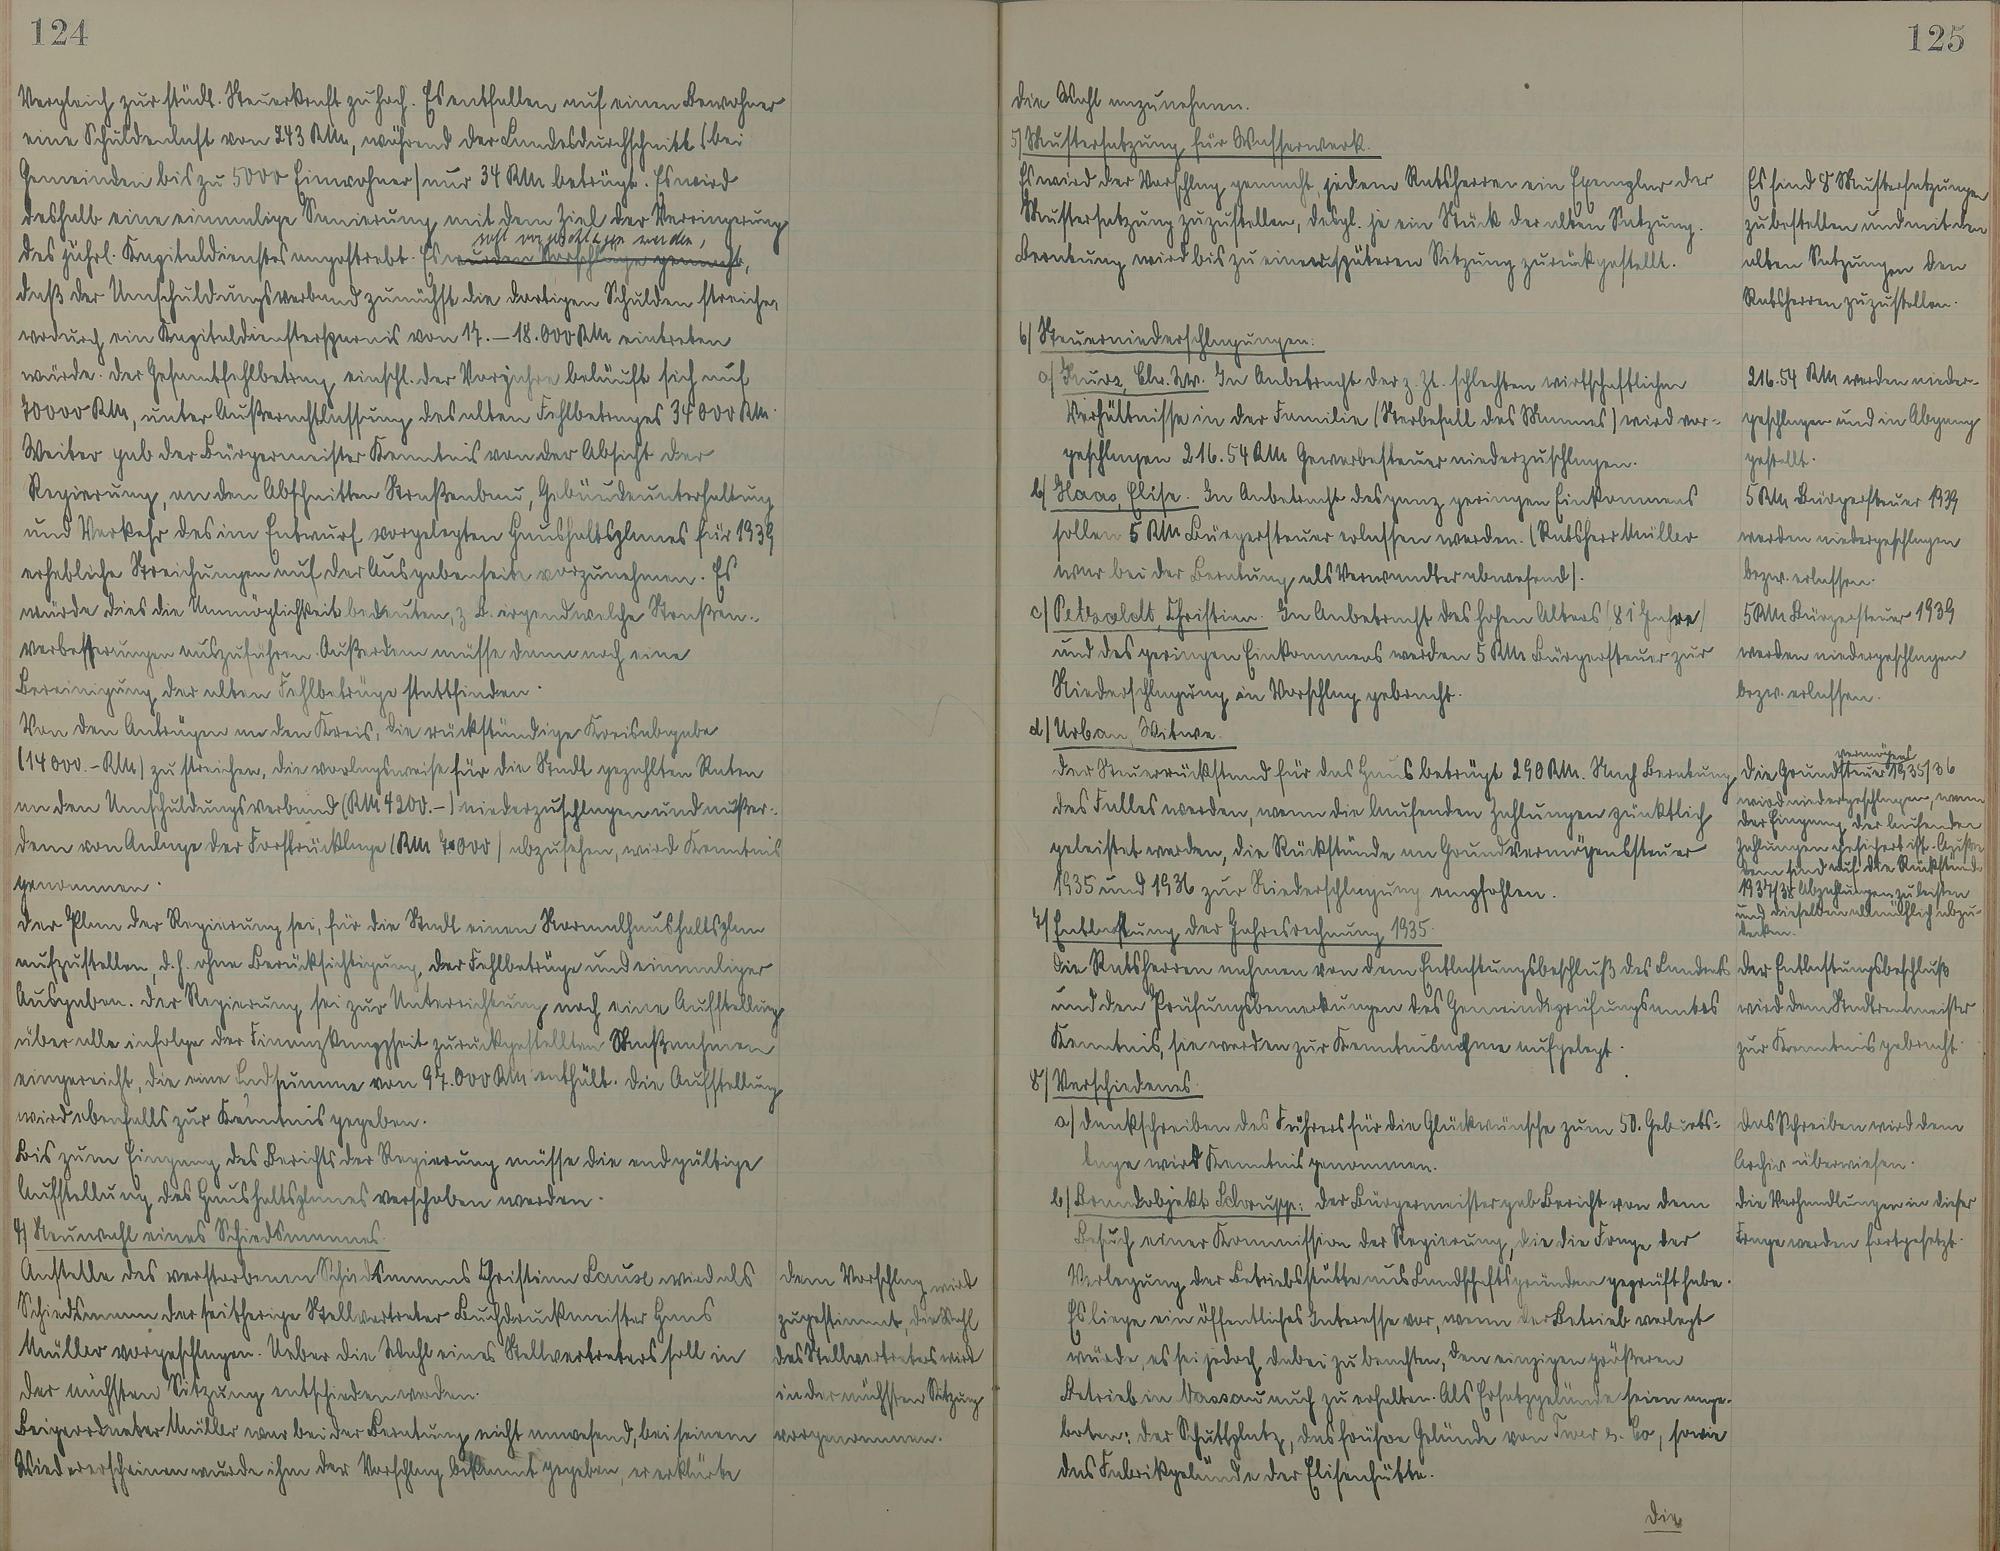 124
Vergleich zur städt. Steuerkraft zu hoch. Es entfallen auf einen Bewohner
eine Schuldenlast von 243 RM, während der Landesdurchschnitt (bei
Gemeinden bis zu 5000 Einwohner) nur 34 RM beträgt. Es wird
deshalb eine einmalige Sanierung mit dem Ziel der Verringerung
soll vorgeschlagen werden,
des jährl. Kapitaldienstes angestrebt. Es wurden Vorschläge gemacht,
daß der Umschuldungsverband zunächst die dortigen Schulden streiche,
wodurch ein Kapitaldienstersparnis von 17.–18.000 RM eintreten
würde. Der Gesamtfehlbetrag einschl. der Vorjahre beläuft sich auf
70000 RM, unter Außerachtlassung des alten Fehlbetrages 34000 RM.
Weiter gab der Bürgermeister Kenntnis von der Absicht der
Regierung, an den Abschnitten Straßenbau, Gebäudeunterhaltung
und Verkehr des im Entwurf vorgelegten Haushaltsplanes für 1939
erhebliche Streichungen auf der Ausgabenseite vorzunehmen. Es
würde dies die Unmöglichkeit bedeuten, z.B. irgendwelche Straßen-
verbesserungen auszuführen. Außerdem müsse dann noch eine
Bereinigung der alten Fehlbeträge stattfinden.
Von den Anträgen an den Kreis, die rückständige Kreisabgabe
(14000.- RM) zu streichen, die vorlagsweise für die Stadt gezahlten Raten
an den Umschuldungsverband (RM 4200.–) niederzuschlagen und außer-
dem von Anlage der Forstrücklage (RM 70000) abzusehen, wird Kenntnis
genommen.
Der Plan der Regierung sei, für die Stadt einen Normalhaushaltsplan
aufzustellen, d.h. ohne Berücksichtigung der Fehlbeträge und einmaliger
Ausgaben. Der Regierung sei zur Unterrichtung noch eine Aufstellung
über alle infolge der Finanzknappheit zurückgestellten Maßnahmen
eingereicht, die eine Endsumme von 97.000 RM enthält. Die Aufstellung
wird ebenfalls zur Kenntnis gegeben.
Bis zum Eingang des Berichts der Regierung müsse die endgültige
Aufstellung des Haushaltsplanes verschoben werden.
4) Neuwahl eines Schiedsmannes.
Anstelle des verstorbenen Schiedsmannes Christian Lause wird als
Schiedsmann der seitherige Stellvertreter Buchdruckmeister Hans
Müller vorgeschlagen. Ueber die Wahl eines Stellvertreters soll in
der nächsten Sitzung entschieden werden.
Beigeordneter Müller war bei der Beratung nicht anwesend, bei seinem
Wiedererscheinen wurde ihm der Vorschlag bekannt gegeben, er erklärte
Dem Vorschlag wird
zugestimmt, die Wahl
des Stellvertreters wird
in der nächsten Sitzung
vorgenommen.
125
die Wahl anzunehmen.
5) Mustersatzung für Wasserwerk.
Es wird der Vorschlag gemacht jedem Ratsherren ein Exemplar der
Mustersatzung zuzustellen, desgl. je ein Stück der alten Satzung.
Beratung wird bis zu einer späteren Sitzung zurückgestellt.
Es sind 8 Mustersatzungen
zu bestellen und mit den
alten Satzungen den
Ratsherren zuzustellen.
6) Steuerniederschlagungen:
a) Kurz, Chr. Ww. In Anbetracht der z. Zt. schlechten wirtschaftlichen
Verhältnisse in der Familie (Sterbefall des Mannes) wird vor-
geschlagen 216.54 RM Gewerbesteuer niederzuschlagen.
216.54 RM werden nieder-
geschlagen und in Abgang
gestellt.
b) Haas, Elise. In Anbetracht des ganz geringen Einkommens
sollen 5 RM Bürgersteuer erlassen werden. (Ratsherr Müller
war bei der Beratung als Verwandter abwesend).
5 RM Bürgersteuer 1939
werden niedergeschlagen
bezw. erlassen.
c) Petzoldt, Christian. In Anbetracht des hohen Alters (81 Jahre)
und des geringen Einkommens werden 5 RM Bürgersteuer zur
Niederschlagung in Vorschlag gebracht.
5 RM Bürgersteuer 1939
werden niedergeschlagen
bezw. erlassen.
d) Urban, Witwe.
Der Steuerrückstand für das Haus beträgt 290 RM. Nach Beratung
des Falles werden, wenn die laufenden Zahlungen pünktlich
geleistet werden, die Rückstände an Grundvermögenssteuer
1935 und 1936 zur Niederschlagung empfohlen.
vermögens
Die Grundsteuer 1935/36
wird niedergeschlagen, wenn
der Eingang der laufenden
Zahlungen gesichert ist. Außer
dem sind auf die Rückstände
1937/38 Abzahlungen zu leisten
und dieselben allmählich abzu-
decken.
7) Entlastung der Jahresrechnung 1935.
Die Ratsherren nahmen von dem Entlastungsbeschluß des Landrats
und den Prüfungsbemerkungen des Gemeindeprüfungsamtes
Kenntnis, sie werden zur Kenntnisnahme aufgelegt.
Der Entlastungsbeschluß
wird dem Stadtrentmeister
zur Kenntnis gebracht.
8) Verschiedenes.
a) Dankschreiben des Führers für die Glückwünsche zum 50. Geburts-
tage wird Kenntnis genommen.
Das Schreiben wird dem
Archiv überwiesen.
b) Brandobjekt Schrupp: Der Bürgermeister gab Bericht von dem
Besuch einer Kommission der Regierung, die die Frage der
Verlegung der Betriebsstätte aus Landschaftsgründen geprüft habe.
Es liege ein öffentliches Interesse vor, wenn der Betrieb verlegt
würde, es sei jedoch dabei zu beachten, den einzigen größeren
Betrieb in Nassau auch zu erhalten. Als Ersatzgelände seien ange-
boten: Der Schuttplatz, das frühere Gelände von & Co, sowie
das Fabrikgelände der Elisenhütte.
Die Verhandlungen in dieser
Frage werden fortgesetzt.
Die